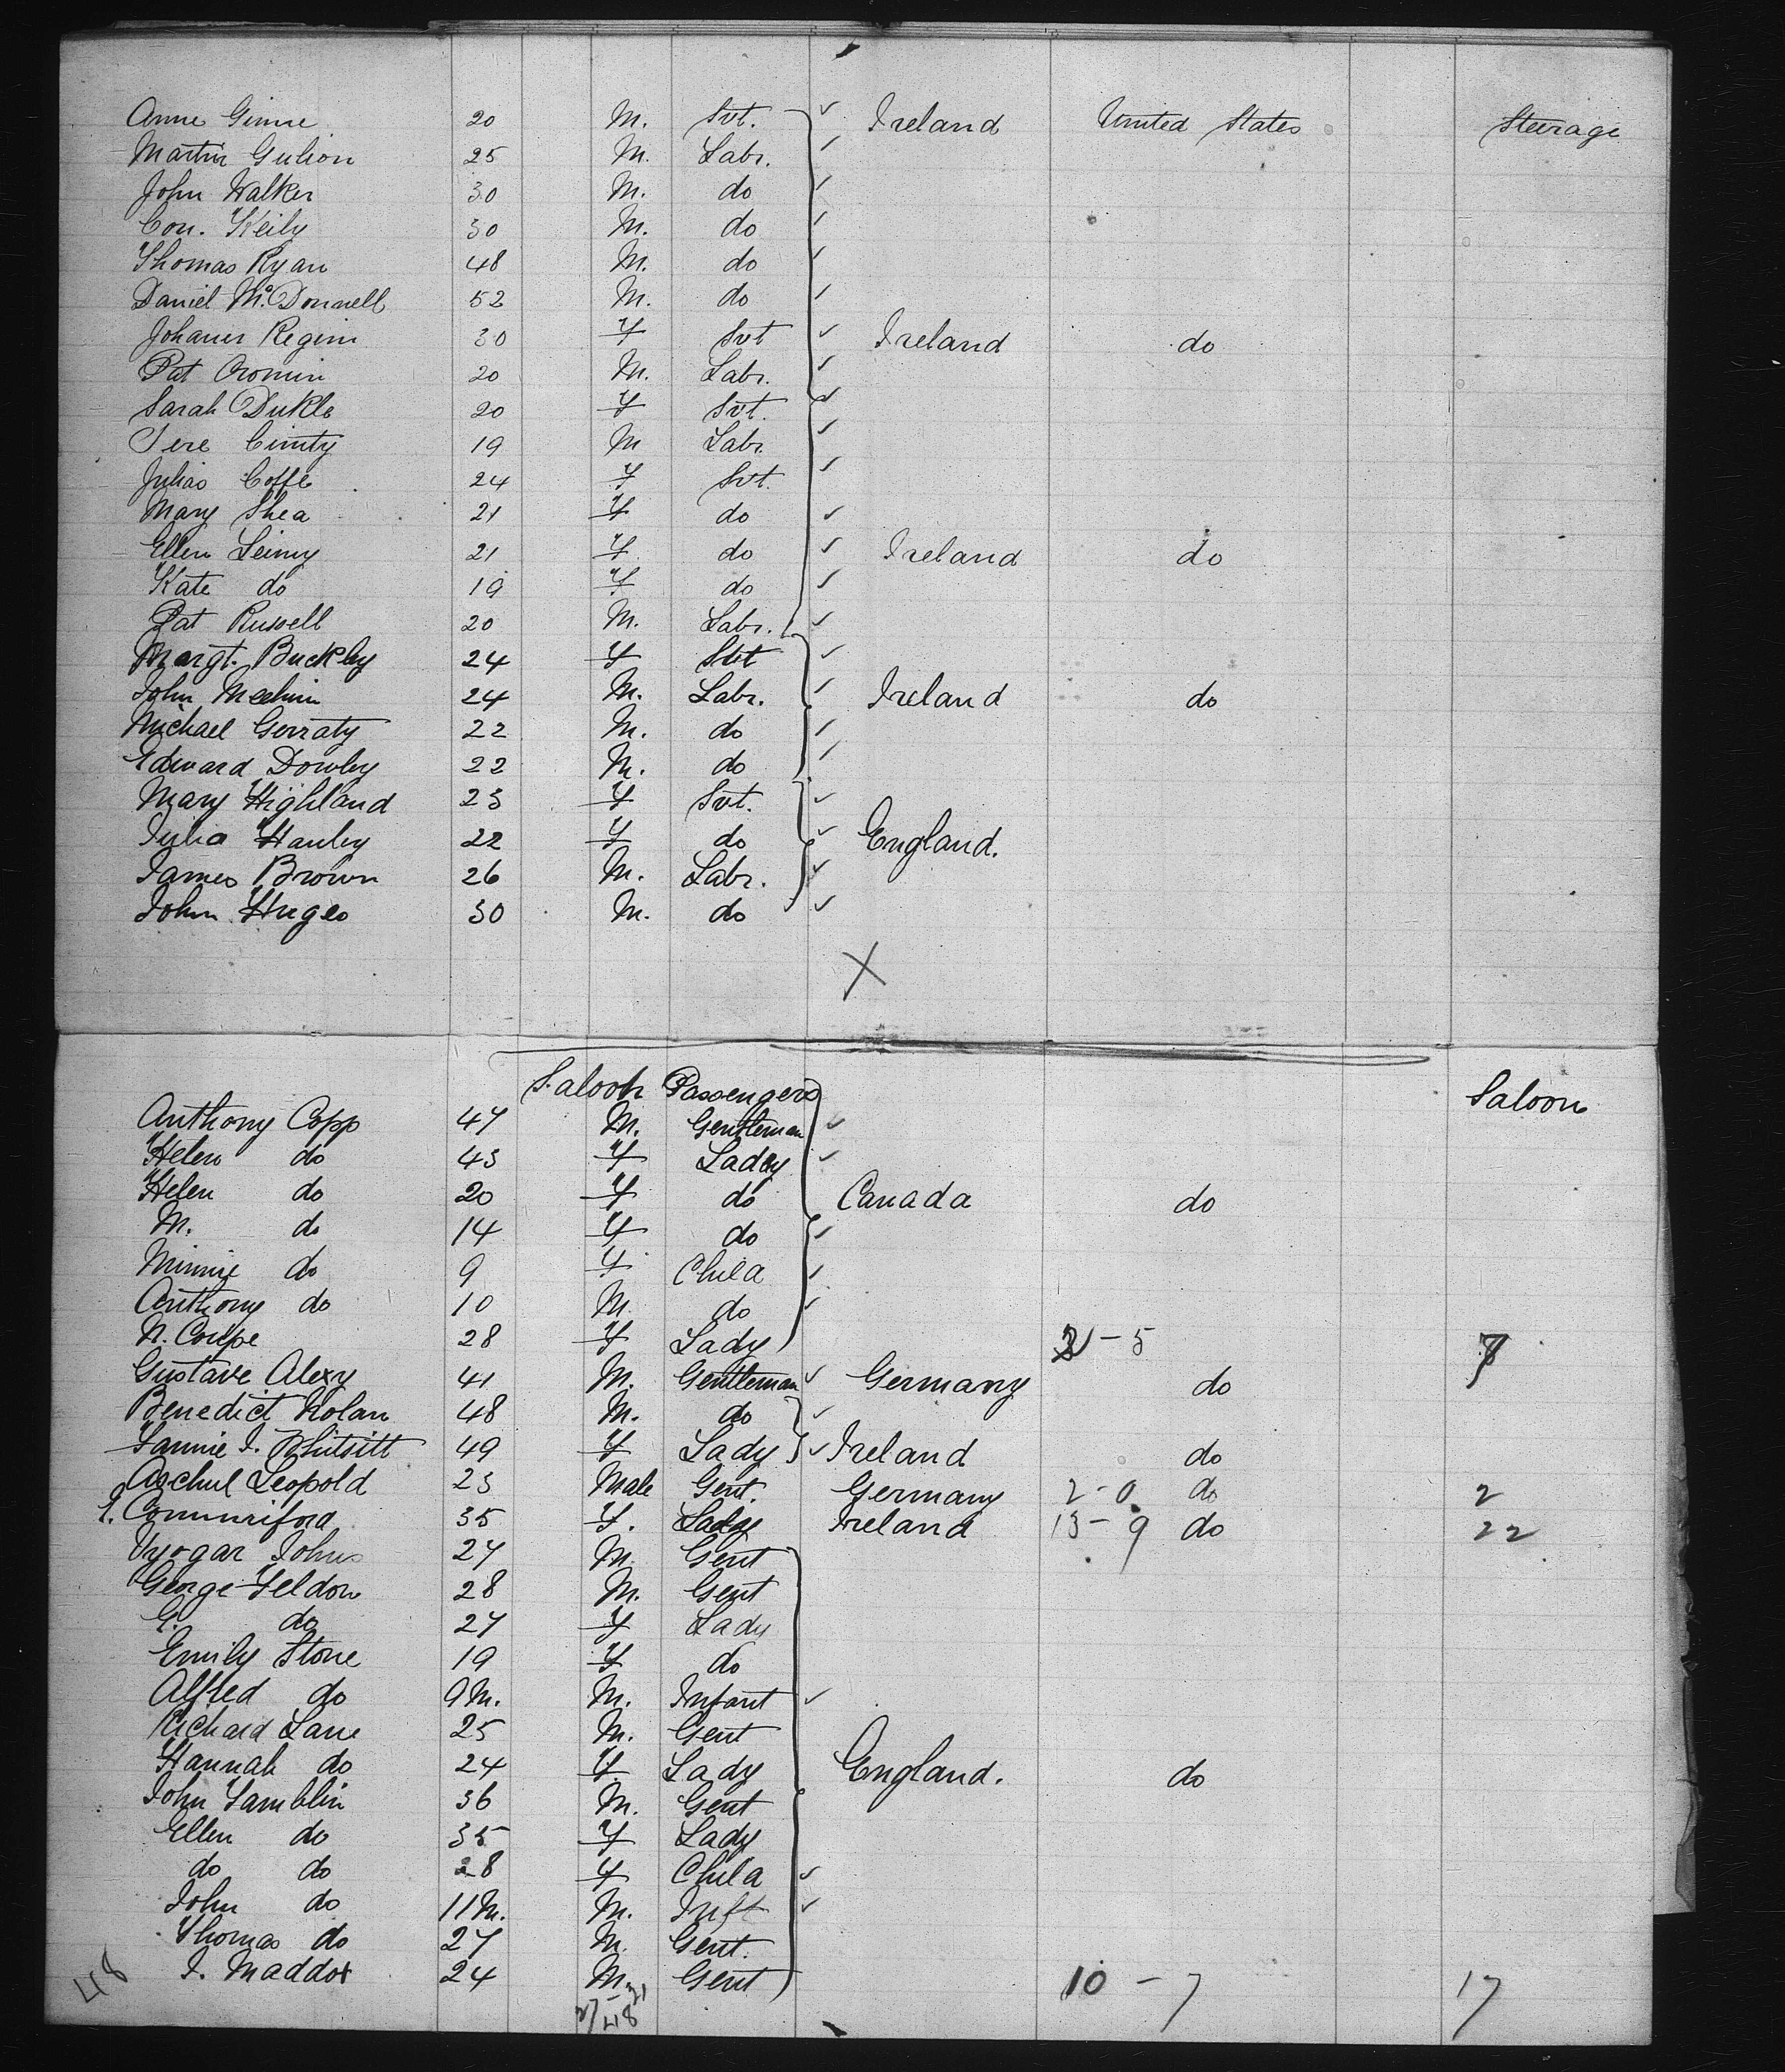 Anne Ginne 20 M. Svt. Ireland United States Steerage
Martin Gulion 25 M. Labr.
John Walker 30 M. do
Con. Keily 30 M. do
Thomas Ryan 48 M. do
Daniel McDonnell 52 M. do
Johaner Regini 30 F Svt Ireland do
Pat Cromin 20 M. Labr.
Sarah Dukle 20 F Svt.
Jere Cinnty 19 M Labr.
Julias Coffe 24 F Svt.
Mary Shea 21 F do
Ellen Leimy 21 F do Ireland do
Kate do 19 F do
Pat Russell 20 M. Labr.
Margt. Buckley 24 F Svt
John Meehin 24 M. Labr. Ireland do
Michael Gerraty 22 M. do
Edward Dowley 22 M. do
Mary Highland 23 F Svt.
Julia Hanley 22 F do England.
James Brown 26 M. Labr.
John Huges 30 M. do
X
Saloon Passengers Saloon
Anthony Copp 47 M. Gentleman
Helen do 43 F Lady
Helen do 20 F do Canada do
M. do 14 F do
Minnie do 9 F Child
Anthony do 10 M do
N. Coupe 28 F Lady 2 - 5 7
Gustave Alexy 41 M. Gentleman Germany do
Benedict Nolan 48 M. do
Fannie J. Whitsitt 49 F Lady Ireland do
Aschul Leopold 23 Male Gent. Germany 2 - 0 do 2
E. Commiford 35 F. Lady Ireland 13 - 9 do 22
Vyogar Johns 27 M. Gent
George Feldon 28 M. Gent
G. do 27 F Lady
Emily Stone 19 F do
Alfred do 9M. M. Infant
Richard Lane 25 M. Gent
Hannah do 24 F Lady England. do
John Tamblin 36 M. Gent
Ellen do 35 F Lady
do do 28 F Child
John do 11M. M. Inft
Thomas do 27 M. Gent.
J. Maddox 24 M. Gent 10 - 7 17
48 27 - 21
48